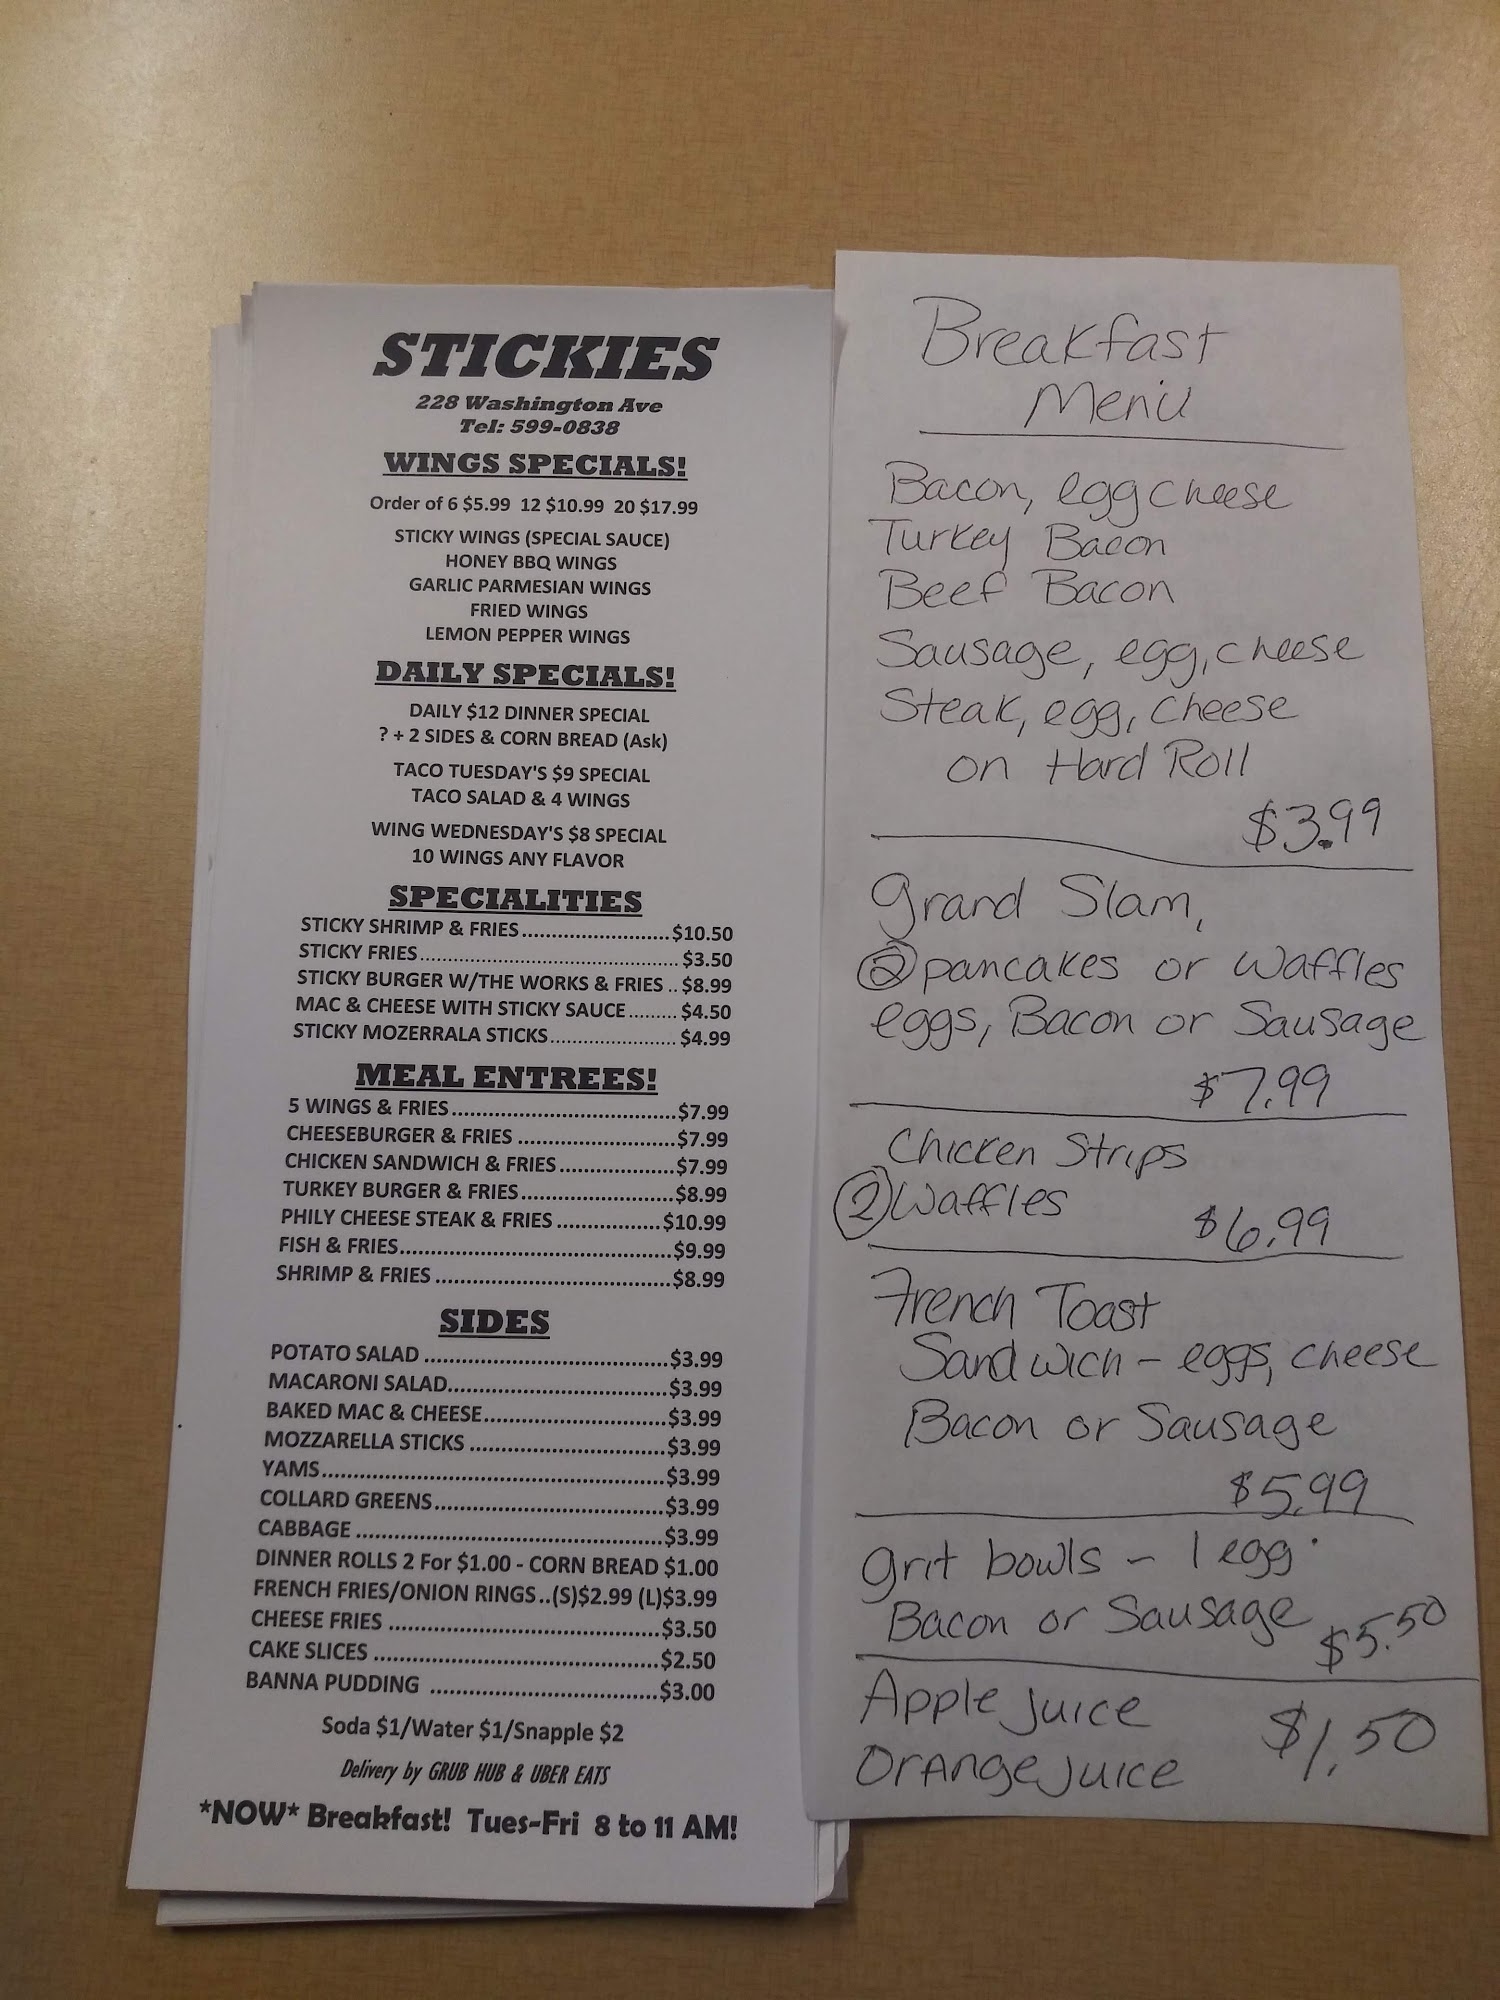 STICKIES
228 Washington Ave
Tel: 599-0838
WINGS SPECIALS!
Order of 6 $5.99 12 $10.99 20 $17.99
STICKY WINGS (SPECIAL SAUCE)
HONEY BBQ WINGS
GARLIC PARMESIAN WINGS
FRIED WINGS
LEMON PEPPER WINGS
DAILY SPECIALS!
DAILY $12 DINNER SPECIAL
? + 2 SIDES & CORN BREAD (Ask)
TACO TUESDAY'S $9 SPECIAL
TACO SALAD & 4 WINGS
WING WEDNESDAY'S $8 SPECIAL
10 WINGS ANY FLAVOR
SPECIALITIES
STICKY SHRIMP & FRIES.........................$10.50
STICKY FRIES............................................$3.50
STICKY BURGER W/THE WORKS & FRIES ..$8.99
MAC & CHEESE WITH STICKY SAUCE.........$4.50
STICKY MOZERRALA STICKS.....................$4.99
MEAL ENTREES!
5 WINGS & FRIES......................................$7.99
CHEESEBURGER & FRIES ...........................$7.99
CHICKEN SANDWICH & FRIES...................$7.99
TURKEY BURGER & FRIES..........................$8.99
PHILY CHEESE STEAK & FRIES ..................$10.99
FISH & FRIES..............................................$9.99
SHRIMP & FRIES ........................................$8.99
SIDES
POTATO SALAD .........................................$3.99
MACARONI SALAD.....................................$3.99
BAKED MAC & CHEESE...............................$3.99
MOZZARELLA STICKS .................................$3.99
YAMS..........................................................$3.99
COLLARD GREENS.......................................$3.99
CABBAGE ....................................................$3.99
DINNER ROLLS 2 For $1.00 - CORN BREAD $1.00
FRENCH FRIES/ONION RINGS..(S)$2.99 (L)$3.99
CHEESE FRIES ..............................................$3.50
CAKE SLICES ................................................$2.50
BANNA PUDDING ......................................$3.00
Soda $1/Water $1/Snapple $2
Delivery by GRUB HUB & UBER EATS
*NOW* Breakfast! Tues-Fri 8 to 11 AM!
Breakfast
Menu
Bacon, egg cheese
Turkey Bacon
Beef Bacon
Sausage, egg, cheese
Steak, egg, cheese
on Hard Roll
$3.99
Grand Slam,
2 pancakes or waffles
eggs, Bacon or Sausage
$7.99
Chicken Strips
2 Waffles $6.99
French Toast
Sandwich - eggs, cheese
Bacon or Sausage
$5.99
grit bowls - 1 egg
Bacon or Sausage $5.50
Apple juice $1.50
Orange juice